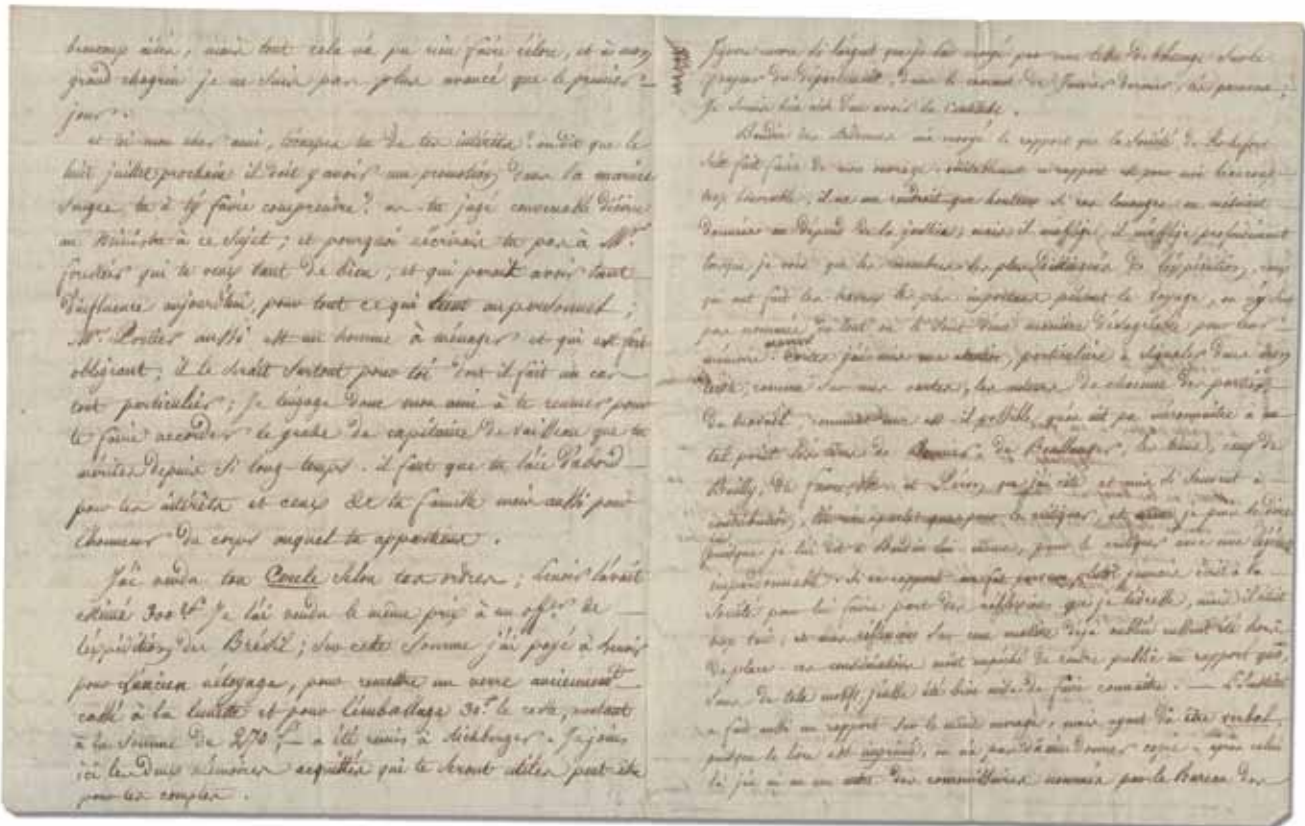 beaucoup d'aller, mais tout cela n'a pu rien faire éclore, et à mon
grand chagrin je ne suis pas plus avancé que le premier
jour.
et toi mon cher ami, t'occupes tu de tes intérêts? on dit que le
huit juillet prochain il doit y avoir une promotion dans la marine
songes tu à t'y faire comprendre? as-tu jugé convenable d'écrire
au Ministre à ce sujet; et pourquoi n'écrirais tu pas à Mr.
qui te veux tant de bien; et qui paroit avoir tant
d'influence aujourd'hui, pour tout ce qui tient au personnel;
Mr. Portier aussi est un homme à ménager et qui est fort
obligeant; il le serait surtout pour toi dont il fait un cas
tout particulier; Je t'engage donc mon ami à te remuer pour
te faire accorder le grade de capitaine de vaisseau que tu
mérites depuis si long-temps. il faut que tu l'aie d'abord
pour tes intérêts et ceux de ta famille mais aussi pour
l'honneur du corps auquel tu appartiens.
J'ai vendu ton Cercle selon tes ordres; Lenoir l'avait
estimé 300 f. Je l'ai vendu le même prix à un offer. de
l'expédition du Brésil; sur cette somme j'ai payé à Lenoir
pour l'ancien nétoyage, pour remettre un verre anciennement
cassé à la lunette et pour l'emballage 30 f. le reste, montant
à la somme de 270 f. a été remis à . Je joins
ici les deux mémoires acquittés qui te seront utiles peut être
pour tes comptes.
J'ignore encore si l'argent que je t'ai envoyé par une lettre de change sur le
payeur du département, dans le courant de Janvier dernier, t'es parvenu;
Je serais bien aise d'en avoir la certitude.
Baudin des Ardennes m'a envoyé le rapport que la Société de Rochefort
s'est fait faire de mon ouvrage. véritablement ce rapport est pour moi beaucoup
trop honorable; il ne me rendrait que honteux si ces louanges ne m'étaient
données au dépend de la justice; mais il m'afflige, il m'afflige profondément
lorsque je vois que les membres les plus distingués de l'expédition, ceux
qui ont fait les travaux les plus importans pendant le voyage, ou n'y sont
pas nommés du tout ou le sont d'une manière désagréable pour leur
mémoire. j'ai mis un soin particulier à signaler dans mon
texte, comme sur mes cartes, les auteurs de chacune des parties
du travail comment donc est il possible, qu'on ait pu méconnaître à un
tel point les titres de Bernier, de Boullanger, les tiens, ceux de
Bailly, de Faure, et Péron, que j'ai cité et mis si souvent à
contribution, 
puisque je l'ai dit à Baudin lui même, pour le critiquer avec une légèreté
impardonnable. Si ce rapport j'aurais écrit à la
Société pour lui faire part des réflexions que je t'adresse, mais il était
trop tard, et mes réflexions sur une matière déjà oubliée eussent été hors
de place. ces considérations m'ont empêché de rendre public un rapport que,
sans de tels motifs, j'eusse été bien aise de faire connaître. — L'Institut
a fait aussi un rapport sur le même ouvrage, mais ayant dû être verbal,
puisque le livre est imprimé, on n'a pas pu m'en donner copie. après celui
là j'ai eu un autre des commissaires nommés par le Bureau des